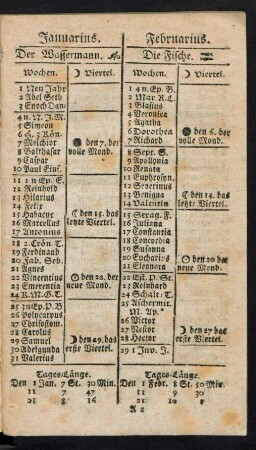 Januarius.
Der Wassermann.
Wochen. ☽ Viertel.
1 Neu Jahr
2 Abel Seth
3 Enoch Dan.
4 n. N. J. M.
5 Simeon
6 H. 3 Kön.
7 Melchior den 7. der
8 Balthasar volle Mond.
9 Caspar
10 Paul Eins.
11 1 n Ep. E
12 Reinhold
13 Hilarius
14 Felix
15 Habacuc den 15. das
16 Marcellus letzte Viertel.
17 Antonius
18 2. Erön T.
19 Ferdinand
20 Fab. Seb.
21 Agnes
22 Vincentius den 22. der
23 Emerentia neue Mond.
24 K. M. G. E.
25 3n Ep. P. B
26 Polycarpus
27 Chrisostom.
28 Carolus
29 Samuel ☽ den 29. das
30 Adelgunda erste Viertel.
31 Valerius
Tages-Länge.
Den 1 Jan. 7 St. 30 Min.
11 7 47
21 8 16
Februarius.
Die Fische.
Wochen. ☽ Viertel.
1 4 n. Ep. B.
2 Mar R. L.
3 Blasius
4 Veronica
5 Agatha
6 Dorothea den 6. der
7 Richard volle Mond.
8 Sept. S.
9 Apollonia
10 Renata
11 Euphrosyn.
12 Severinus
13 Benigna den 14. das
14 Valentin letzte Viertel.
15 Sexag. F.
16 Juliana
17 Constantia
18 Concordia
19 Susanna
20 Eucharius den 20 der
21 Eleonora neue Mond.
22 Est. P. St.
23 Reinhard
24 Schalt: T.
25 Aschermit.
M. Ap.*
26 Victor
27 Nestor ☽ den 27 das
28 Hector erste Viertel.
29 1 Inv. J.
Tages-Länge.
Den 1 Febr. 8 St. 50 Min.
11 9 30
21 10 8
A 2